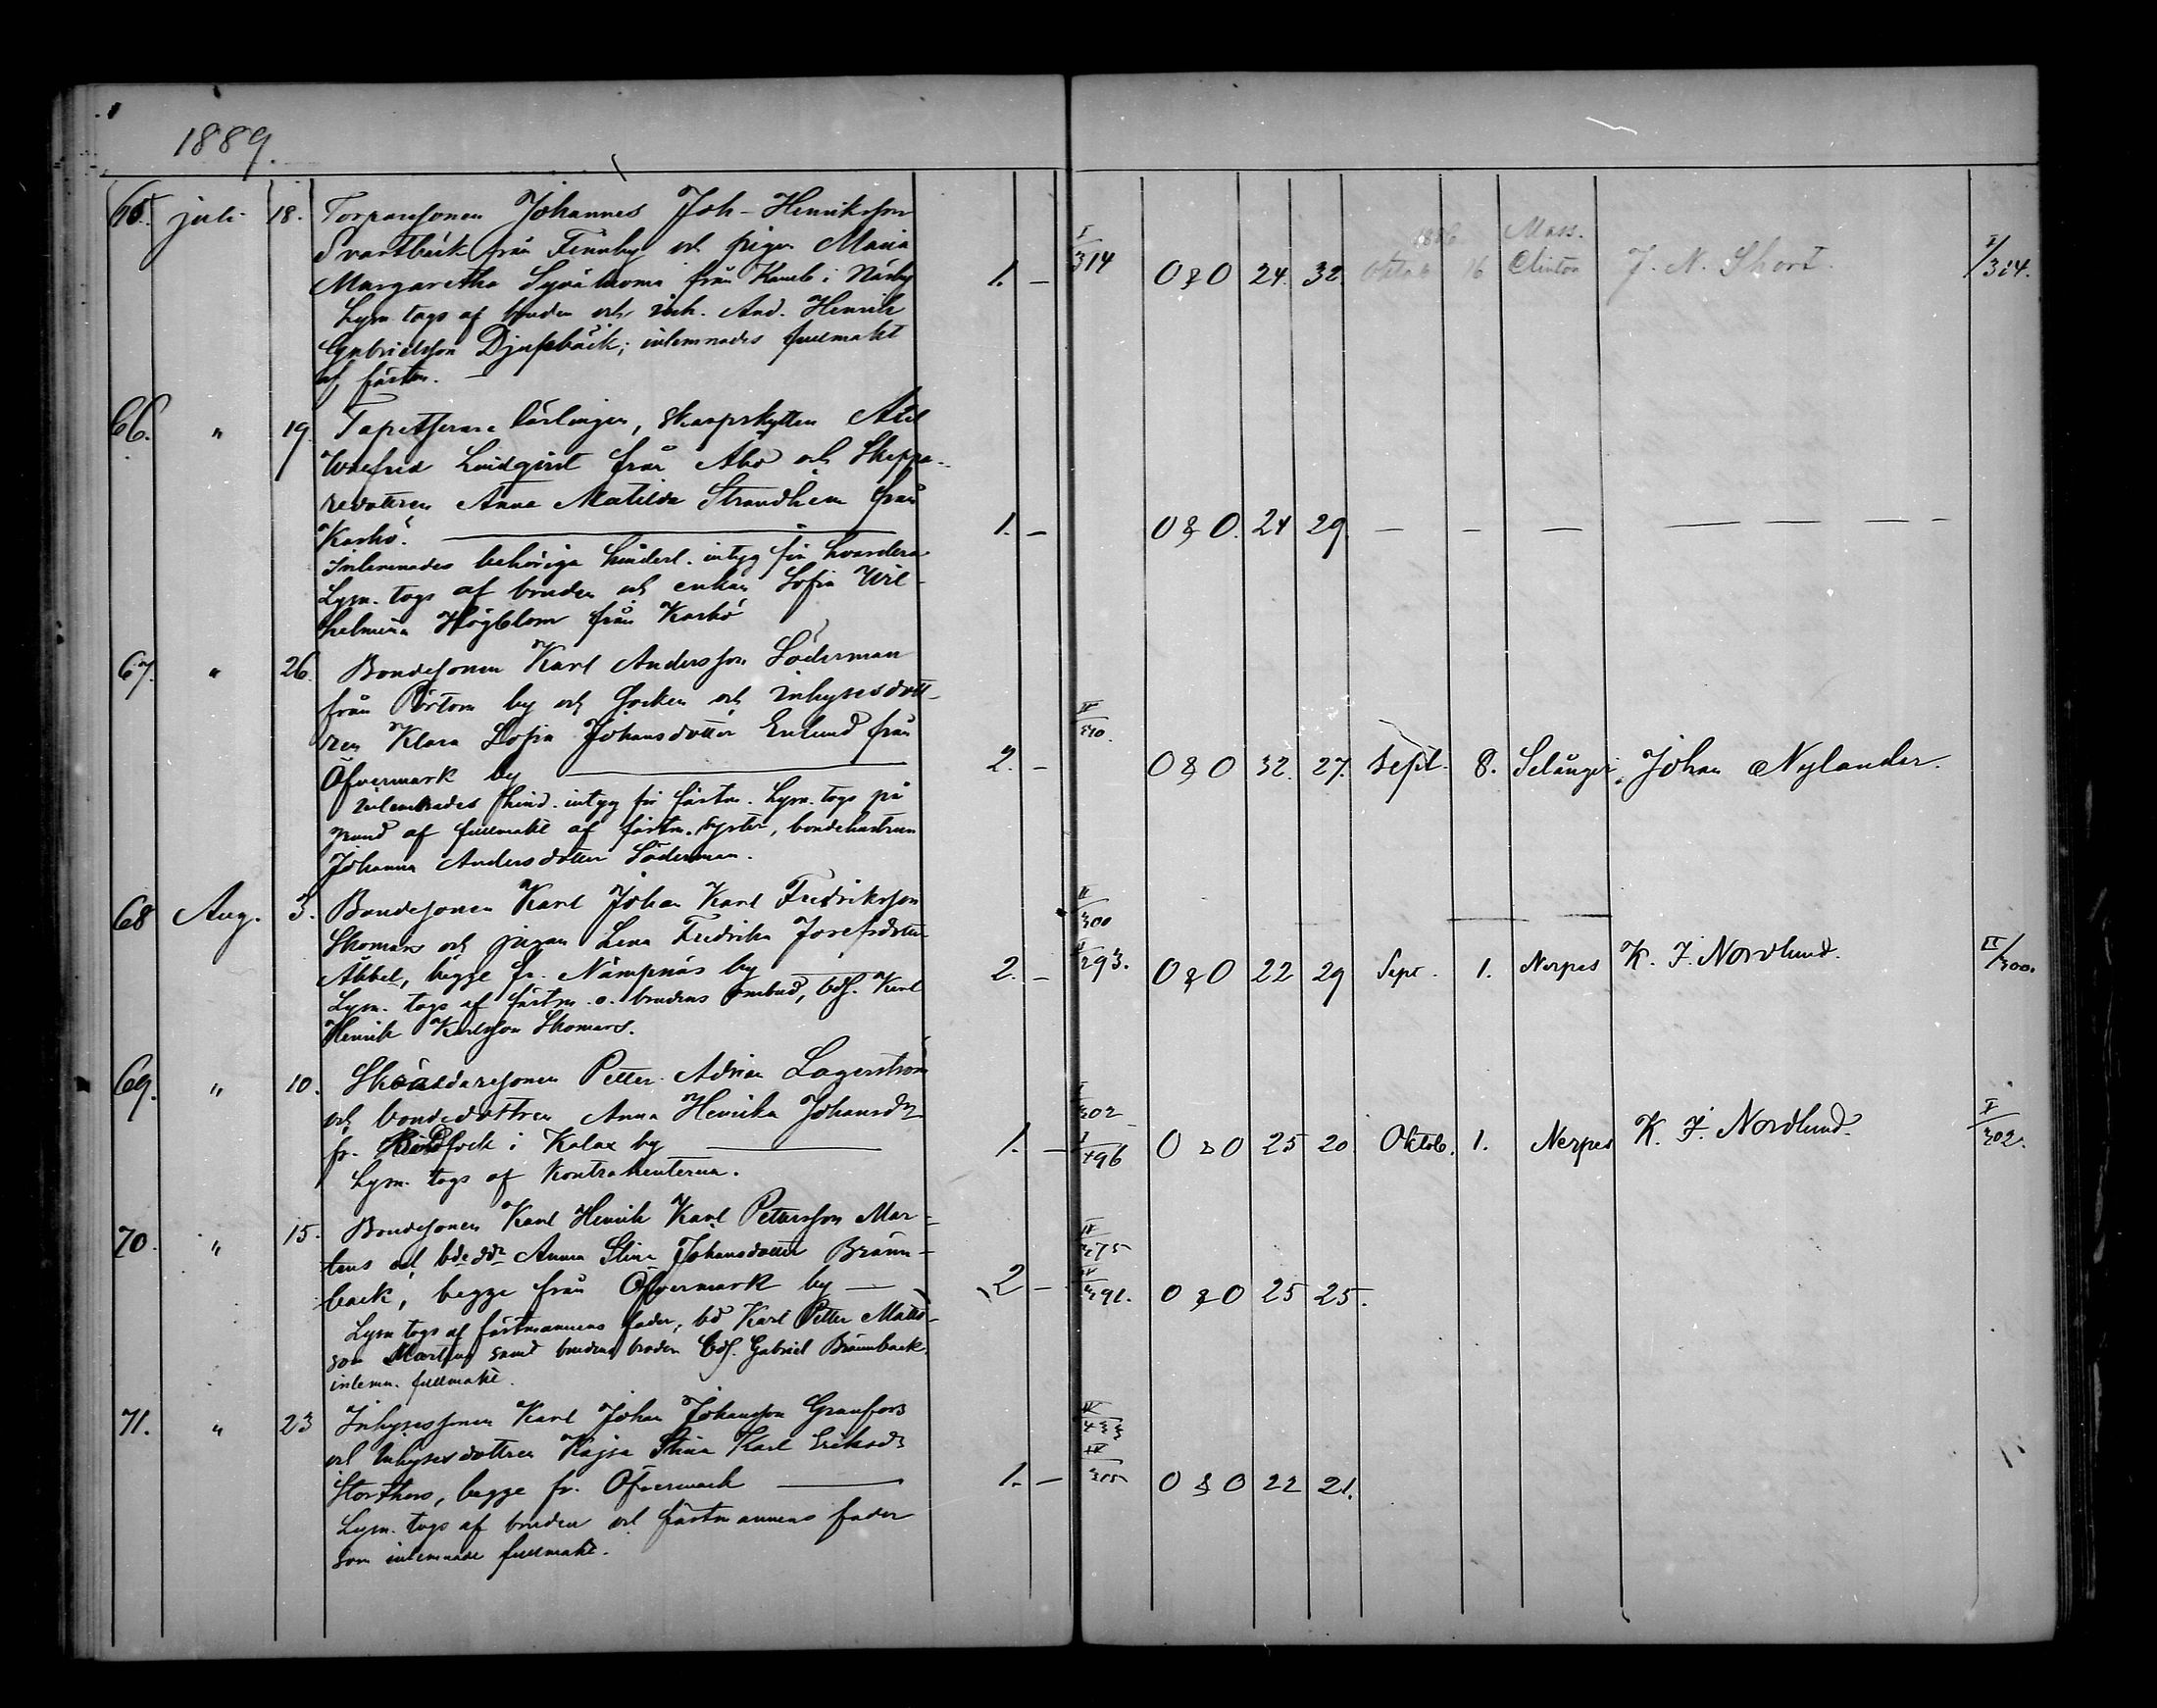 1889.
65. juli 18. Torparesonen Johannes Joh-Henriksson
Svartbäck från Finnby och pigan Maria
Margaretha från i Närby 1. – I/314 O & O 24. 32. Oktob 16 Mass. Clinton J. N. Short. I/314.
Lysn. togs af bruden och inh. And. Henrik
Gabrielsson Djupbäck; inlemnades fullmakt
af fästm.
66. " 19. Tapetserare lärlingen, skarpskytten Axel
Walfrid Lindqvist från Åbo och Skeppa-
redottren Anna Matilda Strandhem från
Kaskö. 1. – O & O. 24 29. – – – – – – –
Inlemnades behöriga hinderl. intyg för hvardera
Lysn. togs af bruden och enkan Sofia Wil-
helmina Högblom från Kaskö
67. " 26. Bondesonen Karl Andersson Söderman
från Pörtom by och socken och inhysesdott-
ren Klara Sofia Johansdotter Enlund från
Öfvermark by 2. – O & O 32. 27. Sept. 8. Selånger Johan Nylander.
inlemnades hind. intyg för fästm. Lysn. togs på
grund af fullmakt af fästm. syster, bondehustrun
Johanna Andersdotter Söderman.
68 Aug. 3. Bondesonen Karl Johan Karl Fredriksson
Skomars och pigan Lena Fredrika Josefsdotter
Åbbel, bägge fr. Nämpnäs by 2. – II/300 293. O & O 22 29 Sept. 1. Nerpes K. J. Nordlund. II/300.
Lysn. togs af fästm. o. brudens ombud, bds. Karl
Henrik Karlsson Skomars.
69. " 10. Skräddaresonen Petter Adrian Lagerström
och bondedottren Anna Henrika Johansdr
fr. i Kalax by 1. – I/302 I/496 O & O 25 20 Oktob. 1. Nerpes K. J. Nordlund. I/302.
Lysn. togs af Kontrahenterna.
70. " 15. Bondesonen Karl Henrik Karl Pettersson Mar-
tens och bdedr Anna Stina Johansdotter Bränn-
back, begge från Öfvermark by – 2 – IV/375 IV/391. O & O 25 25.
Lysn togs af fästmannens fader, bd Karl Petter Matts-
son Martens samt brudens broder bds. Gabriel Brännback.
inlemn. fullmakt.
71. " 23 Inhysessonen Karl Johan Johansson Granfors
och Inhysesdottren Kajsa Stina Karl Eriksdr
Storthors, begge fr. Öfvermark 1. – O & O 22 21.
Lysn. togs af bruden och fästmannens fader
som inlemnade fullmakt.